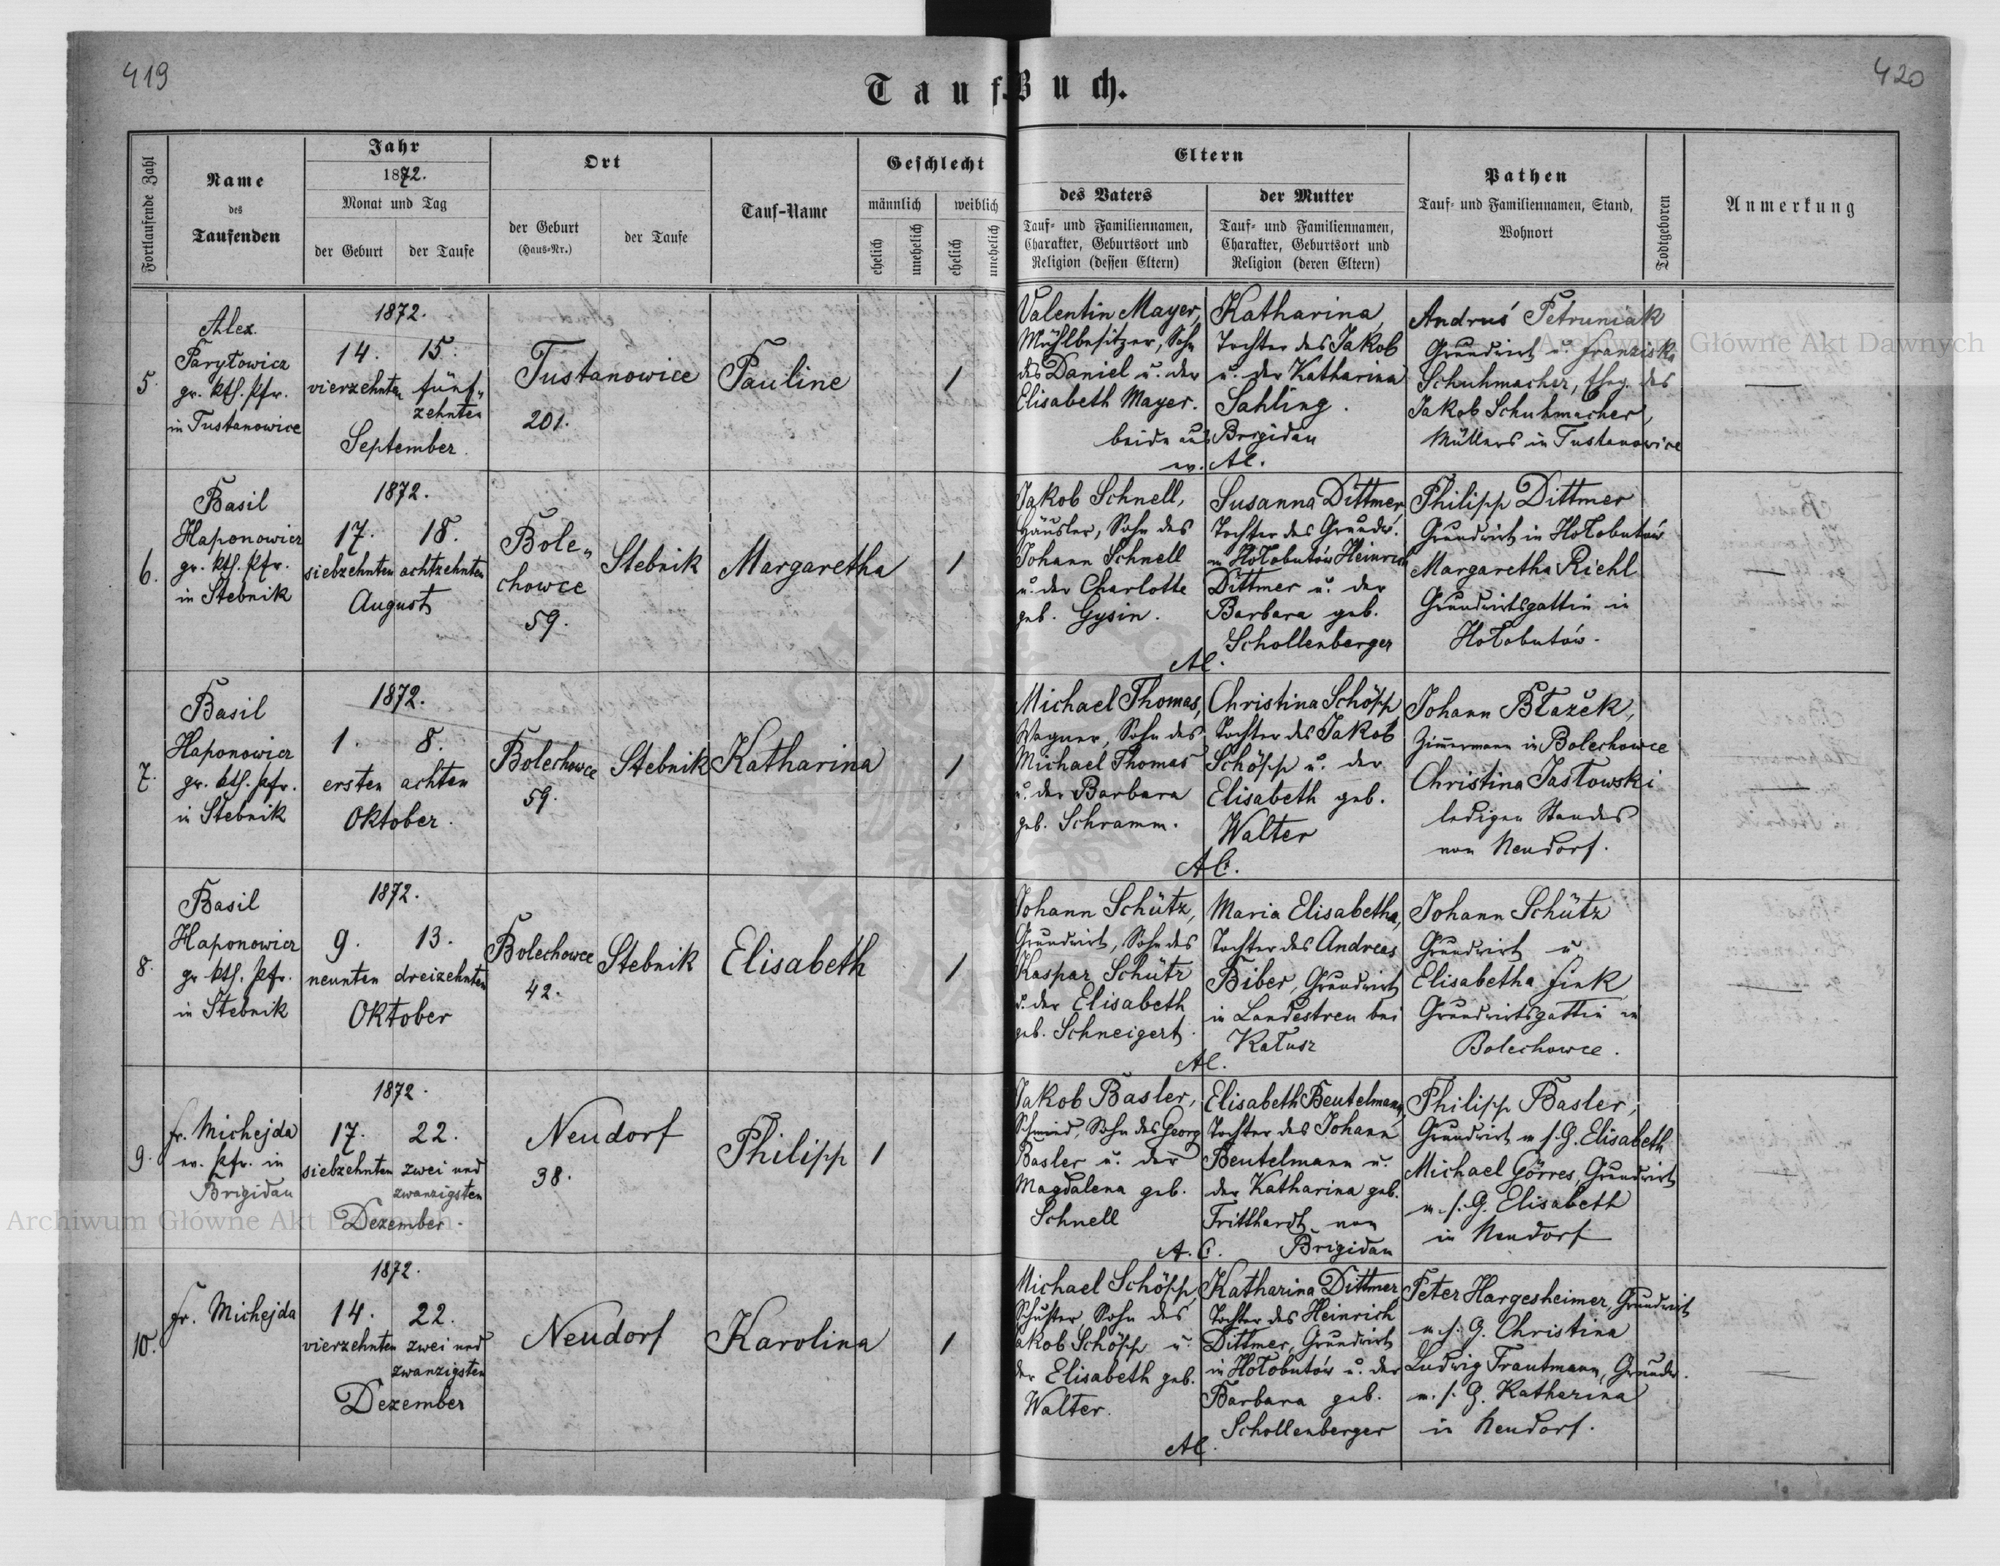 419
420
Tauf-Buch.
Fortlaufende Zahl
Name
des
Taufenden
Jahr
1872.
Monat und Tag
der Geburt
der Taufe
Ort
der Geburt
(Haus-Nr.)
der Taufe
Tauf-Name
Geschlecht
männlich
weiblich
ehelich
unehelich
ehelich
unehelich
Eltern
des Vaters
Tauf- und Familiennamen,
Charakter, Geburtsort und
Religion (dessen Eltern)
der Mutter
Tauf- und Familiennamen,
Charakter, Geburtsort und
Religion (deren Eltern)
Pathen
Tauf- und Familiennamen, Stand,
Wohnort
Todtgeboren
Anmerkung
5.
Alex.
Parylowicz
gr. kth. Pfr.
in Tustanowice
1872.
14. 15.
vierzehnten fünf-
zehnten
September.
Tustanowice
201.
Pauline
1
Valentin Mayer,
Mühlbesitzer, Sohn
des Daniel u. der
Elisabeth Mayer.
beide aus Brigidau
ev. A.C.
Katharina,
Tochter des Jakob
u. der Katharina
Sahling.
Andruś Petruniak
Grundwirt u. Franziska
Schuhmacher, Eheg. des
Jakob Schuhmacher,
Müllers in Tustanowice
6.
Basil
Haponowicz
gr. kth. Pfr.
in Stebnik
1872.
17. 18.
siebzehnten achtzehnten
August
Bole-
chowce
59.
Stebnik
Margaretha
1
Jakob Schnell,
Häusler, Sohn des
Johann Schnell
u. der Charlotte
geb. Gysin.
A.C.
Susanna Dittmer
Tochter des Grundw.
in Hołobutów Heinrich
Dittmer u. der
Barbara geb.
Schollenberger
Philipp Dittmer
Grundwirt in Hołobutów
Margaretha Riehl
Grundwirtsgattin in
Hołobutów.
7.
Basil
Haponowicz
gr. kth. Pfr.
in Stebnik
1872.
1. 8.
ersten achten
Oktober.
Bolechowce
59.
Stebnik
Katharina
1
Michael Thomas,
Wagner, Sohn des
Michael Thomas
u. der Barbara
geb. Schramm.
A.C.
Christina Schöpp
Tochter des Jakob
Schöpp u. der
Elisabeth geb.
Walter
Johann Błažek,
Zimmermann in Bolechowce
Christina Jasłowski
ledigen Standes
von Neudorf.
8.
Basil
Haponowicz
gr. kth. Pfr.
in Stebnik
1872.
9. 13.
neunten dreizehnten
Oktober
Bolechowce
42.
Stebnik
Elisabeth
1
Johann Schütz,
Grundwirt, Sohn des
Kaspar Schütz
u. der Elisabeth
geb. Schneigert.
A.C.
Maria Elisabetha,
Tochter des Andreas
Biber, Grundwirt
in Landestreu bei
Kałusz
Johann Schütz
Grundwirt u.
Elisabetha Fink
Grundwirtsgattin in
Bolechowce.
9.
Fr. Michejda
ev. Pfr. in
Brigidau
1872.
17. 22.
siebzehnten zwei und
zwanzigsten
Dezember.
Neudorf
38.
Philipp
1
Jakob Basler,
Schmied, Sohn des Georg
Basler u. der
Magdalena geb.
Schnell
A.C.
Elisabeth Beutelmann,
Tochter des Johann
Beutelmann u.
der Katharina geb.
Fritthardt von
Brigidau
Philipp Basler,
Grundwirt m. s. G. Elisabeth
Michael Görres, Grundwirt
m. s. G. Elisabeth
in Neudorf
10.
Fr. Michejda
1872.
14. 22.
vierzehnten zwei und
zwanzigsten
Dezember
Neudorf
Karolina
1
Michael Schöpp
Schuster, Sohn des
Jakob Schöpp u.
der Elisabeth geb.
Walter.
A.C.
Katharina Dittmer
Tochter des Heinrich
Dittmer, Grundwirt
in Hołobutów u. der
Barbara geb.
Schollenberger
Peter Hargesheimer, Grundwirt
m. s. G. Christina
Ludwig Trautmann, Grundw.
m. s. G. Katharina
in Neudorf.
Archiwum Główne Akt Dawnych
Archiwum Główne Akt Dawnych